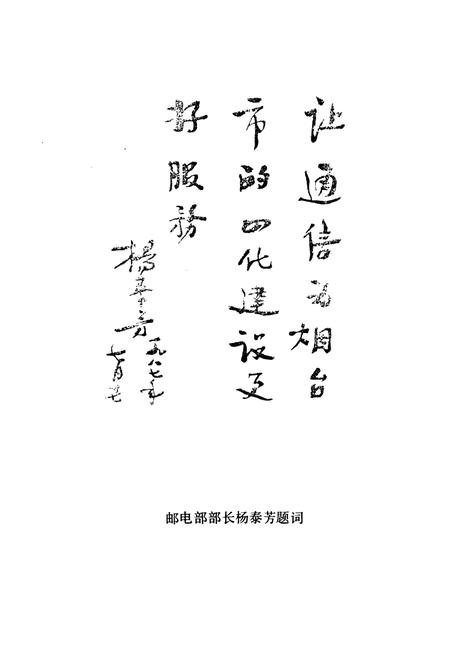 让通信为烟台
市的四化建设更
好服務
楊泰芳
一九八七年
七月廿七
邮电部部长杨泰芳题词